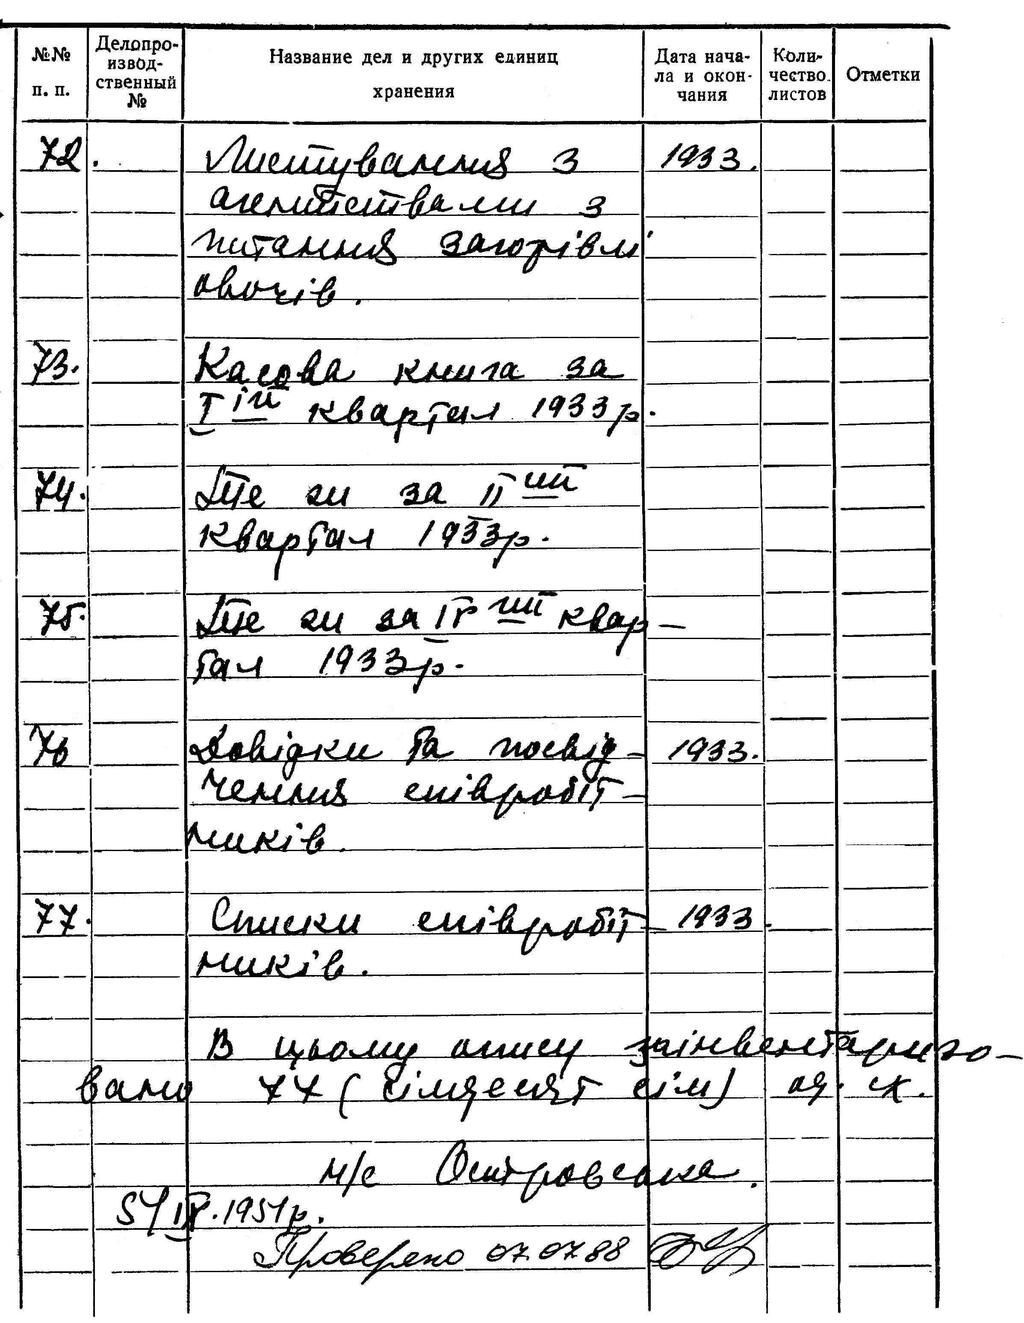 №№ п. п. Делопро-извод-ственный № Название дел и других единиц хранения Дата нача-ла и окон-чания Коли-чество листов Отметки
72. Листування з 1933.
агентствами з
питання загот­івлі
овочів.
73. Касова книга за
Iій квартал 1933 р.
74. Те ж за II ий
квартал 1933 р.
75. Те ж за IV ий квар-
тал 1933 р.
76 Довідки та посвід- 1933.
чення співробіт-
ників.
77. Списки співробіт- 1933.
ників.
В цьому опису заінвентаризо-
вано 77 (сімдесят сім) од. сх.
н/с Островська.
5/IV.1951 р.
Проверено 07.07.88